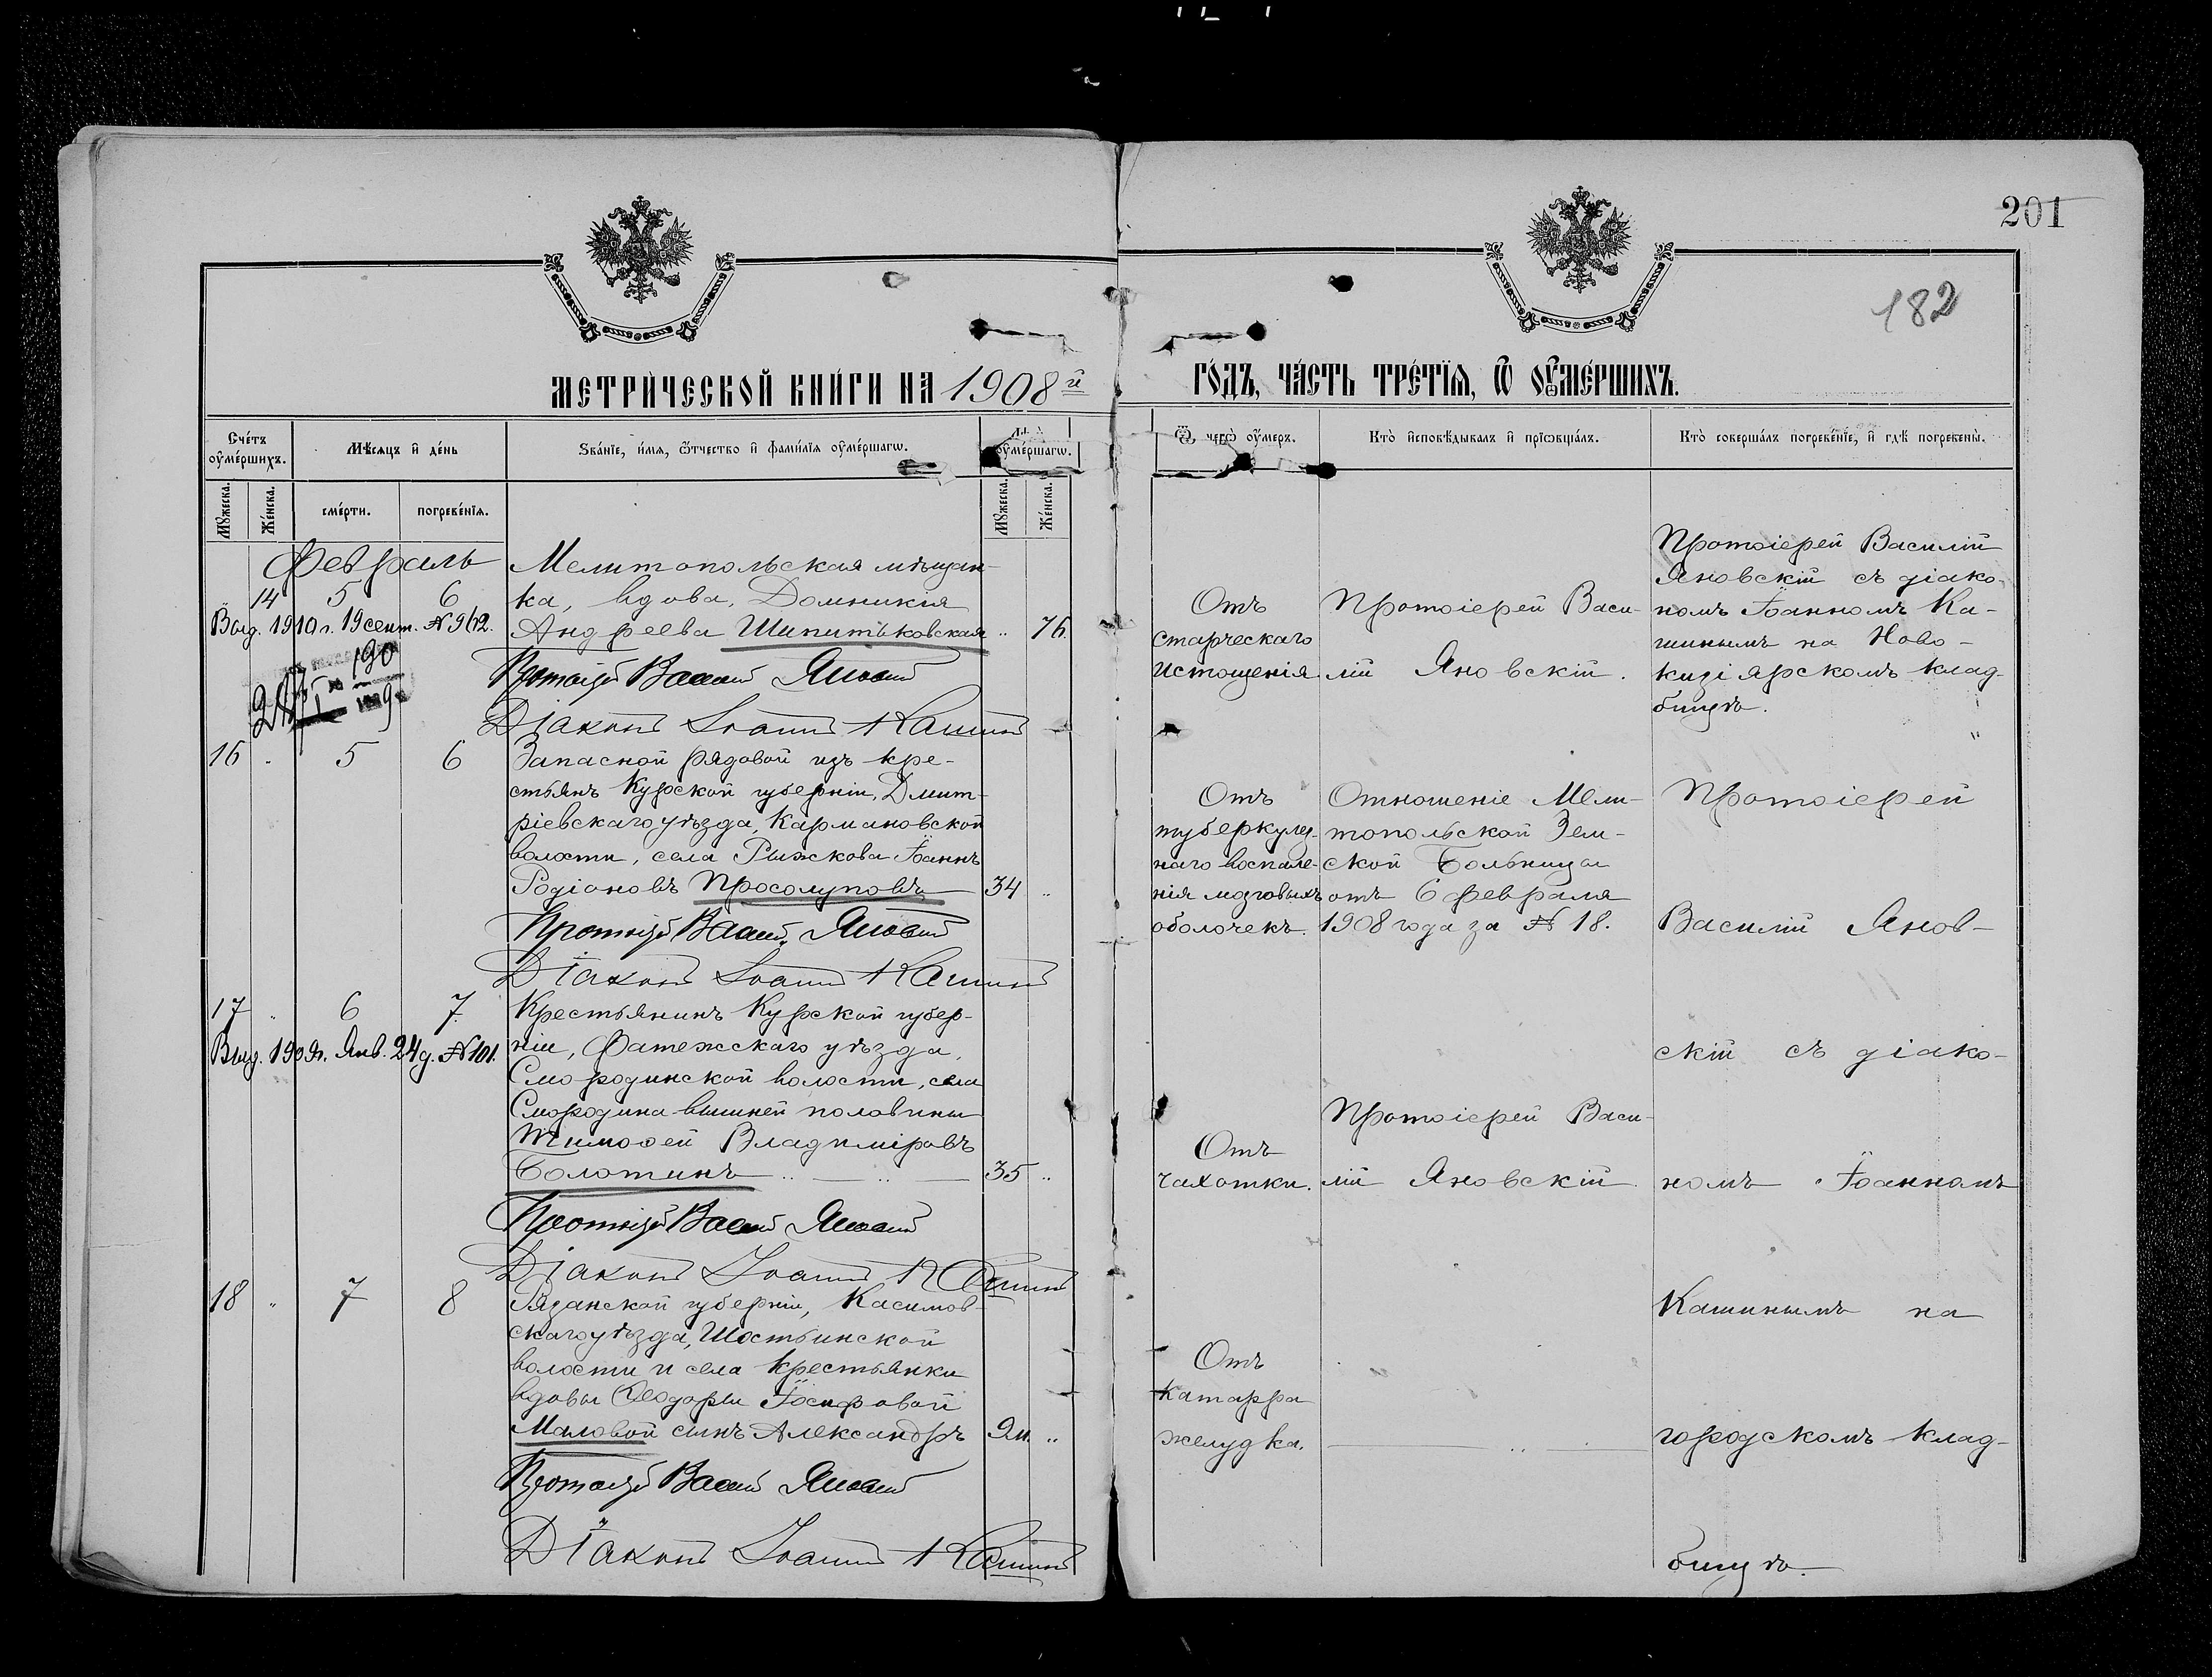 201
182
МЕТРИ́ЧЕСКОЙ КНИ́ГИ НА 1908 й
ГО́ДЪ, ЧА́СТЬ ТРЕ́ТЇѦ, Ѡ ОУМЕ́РШИХЪ.
Сче́тъ оуме́ршихъ.
Мѣ́сяцъ и де́нь
Зва́нїе, и́мѧ, ѻ́тчество и фами́лїѧ оуме́ршагѡ.
оуме́ршагѡ.
Ѿ чегѡ̀ оу́меръ.
Кто̀ исповѣ́дывалъ и прїѡбща́лъ.
Кто̀ соверша́лъ погребе́нїе, и гдѣ̀ погребены̀.
Му́жеска.
Же́нска.
сме́рти.
погребе́нїѧ.
Му́жеска.
Же́нска.
Февраль
14 5 6
Выд. 1910 г. 19 сент. № 962.
190
Мелитопольская мѣщан-
ка, вдова, Домникія
Андреева Шипитьковская „ 76.
Протоіерей Василій Яновскій
Діаконъ Іоаннъ Кашинъ
Отъ
старческаго
истощенія
Протоіерей Васи-
лій Яновскій.
Протоіерей Василій
Яновскій съ діако-
номъ Іоанномъ Ка-
шинымъ на Ново-
кизіярскомъ клад-
бищѣ.
16 „ 5 6
Запасной рядовой изъ кре-
стьянъ Курской губерніи, Дмит-
ріевскаго уѣзда, Кармановской
волости, села Рыжкова Іоаннъ
Родіоновъ Просолуповъ 34 „
Протоіерей Василій Яновскій
Діаконъ Іоаннъ Кашинъ
Отъ
туберкулез-
наго воспале-
нія мозговыхъ
оболочекъ.
Отношеніе Мели-
топольской Зем-
ской Больницы
отъ 6 февраля
1908 года за № 18.
Протоіерей
Василій Янов-
17 „ 6 7.
Выд. 1909 г. Янв. 24 д. № 101.
Крестьянинъ Курской губер-
ніи, Фатежскаго уѣзда,
Смородинской волости, села
Смородина вышней половины
Тимоѳей Владиміровъ
Болотинъ 35 „
Протоіерей Василій Яновскій
Діаконъ Іоаннъ Кашинъ
Отъ
чахотки.
Протоіерей Васи-
лій Яновскій
скій съ діако-
номъ Іоанномъ
18 „ 7 8
Рязанской губерніи, Касимов-
скаго уѣзда, Шостьинской
волости и села крестьянки
вдовы Ѳеодоры Іосифовой
Маловой сынъ Александръ 2 м. „
Протоіерей Василій Яновскій
Діаконъ Іоаннъ Кашинъ
Отъ
катарра
желудка.
Кашинымъ на
городскомъ клад-
бищѣ.